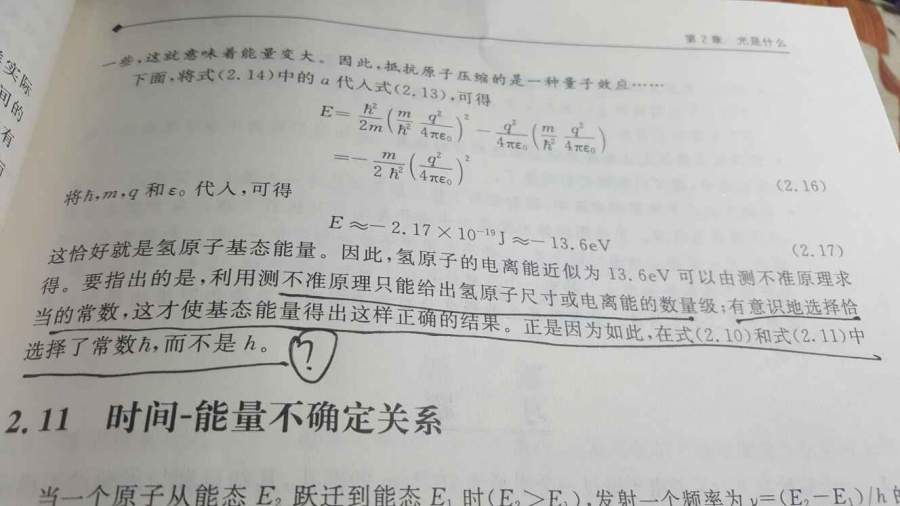 第2章 光是什么
一些,这就意味着能量变大。因此,抵抗原子压缩的是一种量子效应……
下面,将式(2.14)中的 a 代入式(2.13),可得
E= ħ²/2m (m/ħ² q²/4πε₀)² − q²/4πε₀ (m/ħ² q²/4πε₀)
=− m/2ħ² (q²/4πε₀)² (2.16)
将ħ,m,q 和 ε₀ 代入,可得
E≈−2.17×10⁻¹⁹J≈−13.6eV (2.17)
这恰好就是氢原子基态能量。因此,氢原子的电离能近似为 13.6eV 可以由测不准原理求
得。要指出的是,利用测不准原理只能给出氢原子尺寸或电离能的数量级;有意识地选择恰
当的常数,这才使基态能量得出这样正确的结果。正是因为如此,在式(2.10)和式(2.11)中
选择了常数ħ,而不是 h。 ?
2.11 时间-能量不确定关系
当一个原子从能态 E₂ 跃迁到能态 E₁ 时(E₂>E₁),发射一个频率为 ν=(E₂−E₁)/h 的
实际
间的
有